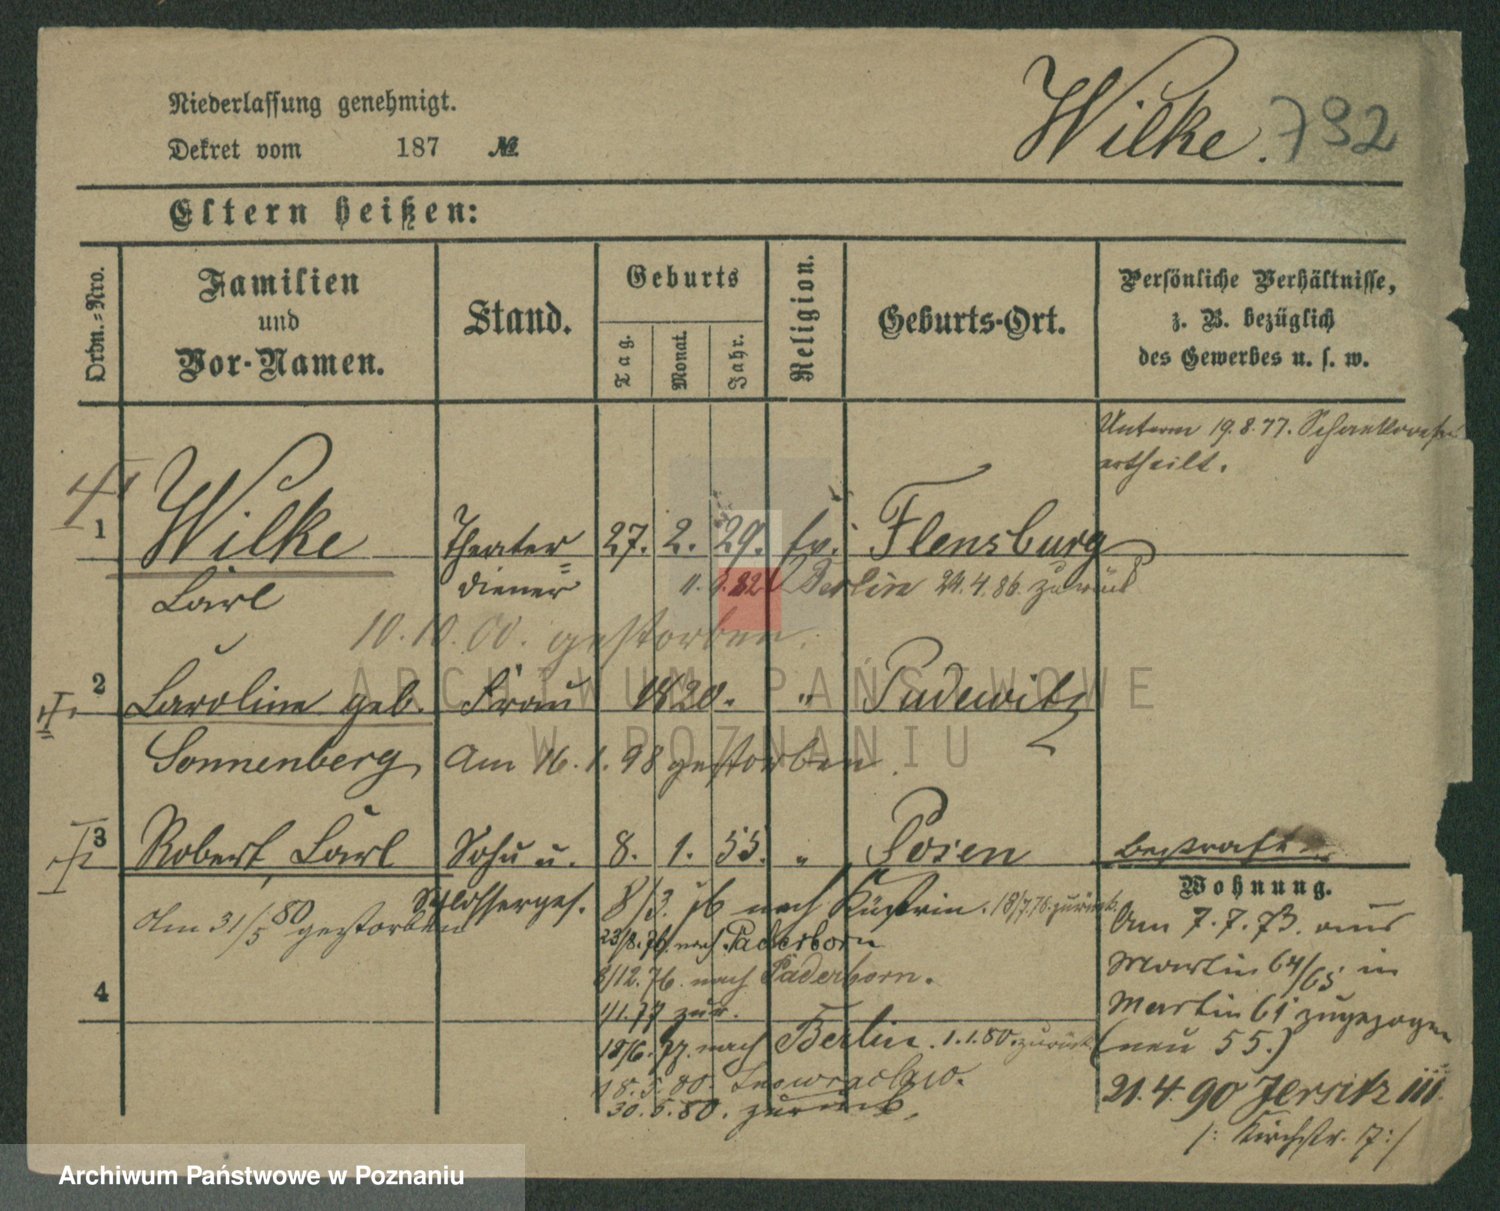 Niederlassung genehmigt.
Dekret vom 187 №
Wilke. 792
Eltern heißen:
Ordn.-Nro.
Familien
und
Vor-Namen.
Stand.
Geburts
Tag.
Monat.
Jahr.
Religion.
Geburts-Ort.
Persönliche Verhältnisse,
z. B. bezüglich
des Gewerbes u. s. w.
Unterm 19.8.77.
ertheilt.
1
Wilke
Theater=
27. 2. 29. ev.
Flensburg
Carl
diener
Berlin 24.4.86. zurück
10.10.00. gestorben.
2
Caroline geb.
Frau
1820. "
Pudewitz
Sonnenberg
Am 16.1.98 gestorben.
3
Robert, Carl
Sohn u.
8. 1. 55. "
Posen
bestraft
Schlosserges.
8/3. 76 nach Küstrin. 18/7.76. zurück.
Wohnung.
Am 31/5 80 gestorben
Am 7.7.73. aus
23/8.76. nach Paderborn
Martin 64/65 in
8/12.76. nach Paderborn.
4
Martin 61 zugezogen
1/1.77 zur.
(neu 55.)
18/6.77. nach Berlin. 1.1.80. zurück
18.5.80. Inowraclaw.
21.4.90 Jersitz III.
30.5.80. zurück.
/: Kirchstr. 17 :/
ARCHIWUM PAŃSTWOWE
W POZNANIU
Archiwum Państwowe w Poznaniu